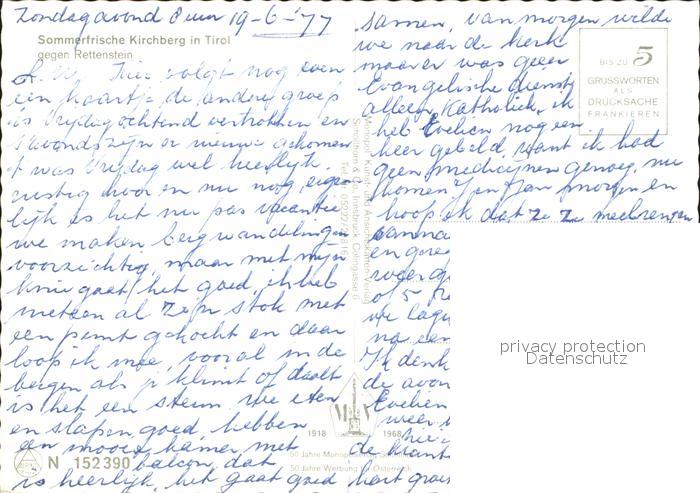 Zondagavond 8 uur 19-6-'77
Sommerfrische Kirchberg in Tirol
gegen Rettenstein
L. Hier volgt nog even
een kaartje, de andere groep
is Vrijdagochtend vertrokken en
's avonds zijn er nieuwe gekomen
't was Vrijdag wel heerlijk
rustig hoor en nu nog, eigen
lijk is het nu pas vacantie
we maken bergwandelingen
voorzichtig, maar met mijn
knie gaat het goed, ik heb
meteen al zo'n stok met
een punt gekocht en daar
loop ik mee, vooral in de
bergen als je klimt of daalt
is het een steun. We eten
en slapen goed, hebben
een mooie kamer met
balcon, dat
is heerlijk, het gaat goed
N 152390
samen, van morgen wilde
we naar de kerk
maar er was geen
Evangelische dienst
alleen Katholiek, ik
heb Evelien nog een
keer gebeld, want ik had
geen medicijnen genoeg, nu
komen Jan morgen en
hoop ik dat ze ze meebrengen
en
weer
of 5
we
na een
Ik denk
de avon
Evelien
weer
hier
de klant
hart groe
BIS ZU 5
GRUSSWORTEN
ALS
DRUCKSACHE
FRANKIEREN
1918
1968
50 Jahre Monopol
50 Jahre Werbung für Österreich
privacy protection
Datenschutz